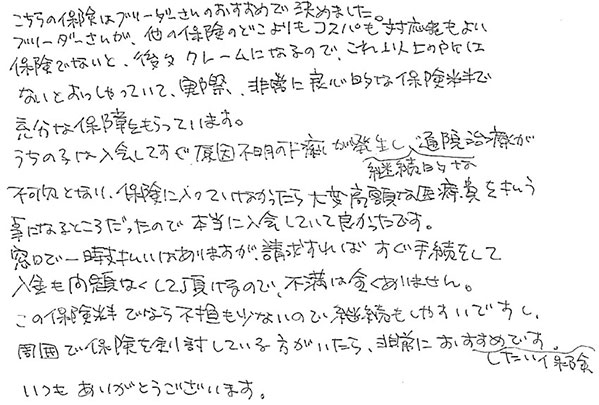 こちらの保険はブリーダーさんのおすすめで決めました。
ブリーダーさんが、他の保険のどこよりもコスパも対応もよい
保険でないと、後々クレームになるので、これ以上の所は
ないとおっしゃっていて、実際、非常に良心的な保険料で
充分な保障をもらっています。
うちの子は入会してすぐ、原因不明の下痢が発生し、通院治療が
継続的な
不可欠となり、保険に入っていなかったら大変高額な医療費を払う
事になるところだったので本当に入会していて良かったです。
窓口で一時払いはありますが、請求すればすぐ手続をして
入金も問題なくして頂けるので、不満は全くありません。
この保険料でなら負担も少ないので継続もしやすいですし、
周囲で保険を検討している方がいたら、非常におすすめです。
したい保険
いつもありがとうございます。